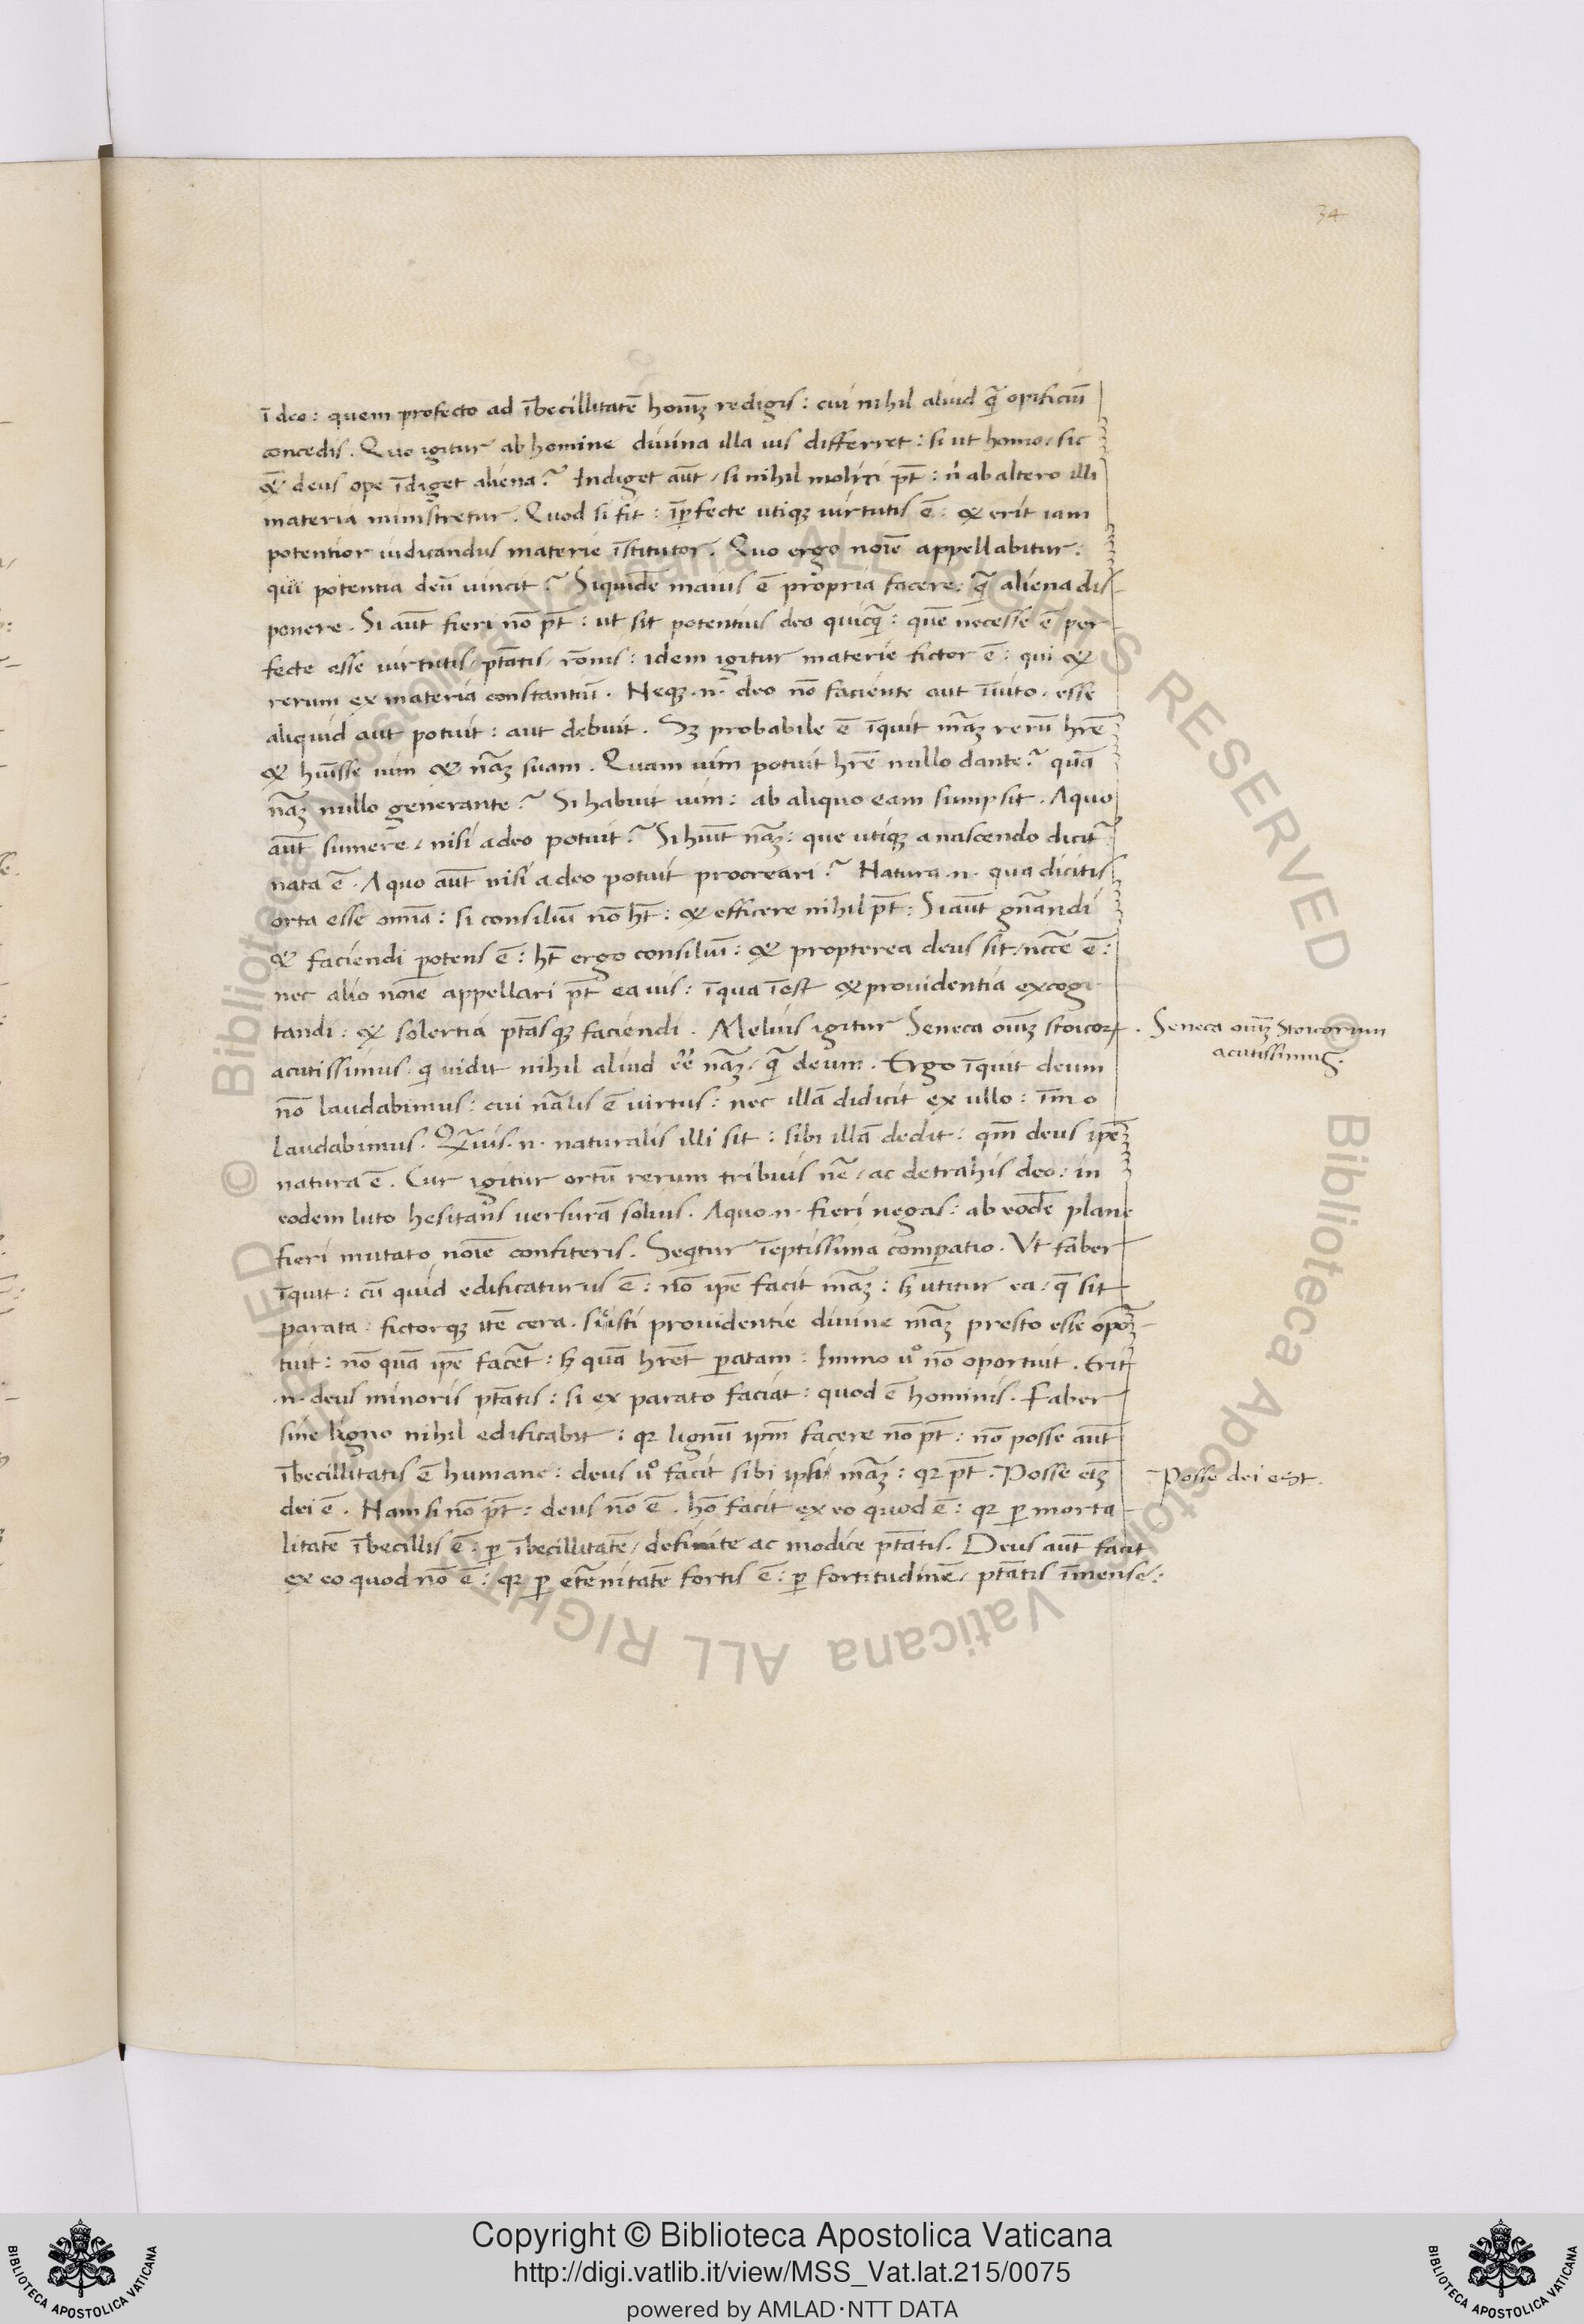 34
ī deo: quem profecto ad ībecillitatē homīꝫ redigis: cui nihil aliud q̄ opificiū
concedis. Quo igitur ab homine divina illa vis differret: si ut homo / sic
& deus ope īdiget aliena? Indiget aūt / si nihil moliri pt̄: n̄ ab altero illi
materia ministretur. Quod si fit: īꝑfecte utiqꝫ virtutis ē: & erit iam
potentior iudicandus materie īstitutor. Quo ergo noīe appellabitur:
qui potentia deū vincit? Siquidē maius ē propria facere: q̄ aliena dis
ponere. Si aūt fieri nō pt̄: ut sit potentius deo quicq̄: quē necesse ē per
fecte esse virtutis / ptātis / rōnis: idem igitur materie fictor ē: qui &
rerum ex materia constantiū. Neqꝫ .n. deo nō faciente aut īvito. esse
aliquid aut potuit: aut debuit. Sꝫ probabile ē īquit māꝫ rerū hr̄e
& huīsse vim & nāꝫ suam. Quam vim potuit hr̄e nullo dante? quā
nāꝫ nullo generante? Si habuit vim: ab aliquo eam sumpsit. A quo
aūt sumere / nisi a deo potuit? Si huīt nāꝫ: que utiqꝫ a nascendo dicit̄
nata ē. A quo aūt nisi a deo potuit procreari? Natura .n. qua dicitis
orta esse omīa: si consiliū nō ht̄: & efficere nihil pt̄: Si aūt gn̄andi
& faciendi potens ē: ht̄ ergo consiliū: & propterea deus sit / nc̄ce ē:
nec alio noīe appellari pt̄ ea vis: ī qua īest & providentia excogi
tandi: & solertia ptāsqꝫ faciendi. Melius igitur Seneca oīuꝫ stoicoꝝ.
acutissimus / q vidit nihil aliud ēē nāꝫ / q̄ deum. Ergo īquit deum
nō laudabimus: cui nālis ē virtus: nec illā didicit ex ullo: īmo
laudabimus. Q̄vis .n. naturalis illi sit: sibi illā dedit: qm̄ deus ip̄e
natura ē. Cur igitur ortū rerum tribuis nē / ac detrahis deo: in
eodem luto hesitans versurā solvis. A quo .n. fieri negas: ab eodē plane
fieri mutato noīe confiteris. Seqtur īeptissima comꝑatio. Ut faber
īquit: cū quid edificaturus ē: nō ip̄e facit māꝫ: sꝫ utitur ea / q̄ sit
parata: fictorqꝫ itē cera. sic isti providentie divine māꝫ presto esse opor
tuit: nō quā ip̄e facēt: sꝫ quā hr̄et ꝑatam: Immo v̊ nō oportuit. Erit
.n. deus minoris ptātis: si ex parato faciat: quod ē hominis. Faber
sine ligno nihil edificabit: qꝛ lignū ip̄m facere nō pt̄: nō posse aūt
ībecillitatis ē humane: deus v̊ facit sibi ipsi māꝫ: qꝛ pt̄. Posse .n.
dei ē. Nam si nō pt̄: deus nō ē. hō facit ex eo quod ē: qꝛ ꝑ morta
litatē ībecillis ē. ꝑ ībecillitatē / definite ac modice ptātis. Deus aūt facit
ex eo quod nō ē: qꝛ ꝑ etn̄itatē fortis ē: ꝑ fortitudinē / ptātis īmense:
Seneca oīuꝫ Stoicorum
acutissimus.
Posse dei est.
© Biblioteca Apostolica Vaticana ALL RIGHTS RESERVED © Biblioteca Apostolica Vaticana ALL RIGHTS RESERVED
Copyright © Biblioteca Apostolica Vaticana
http://digi.vatlib.it/view/MSS_Vat.lat.215/0075
powered by AMLAD·NTT DATA
BIBLIOTECA APOSTOLICA VATICANA
BIBLIOTECA APOSTOLICA VATICANA